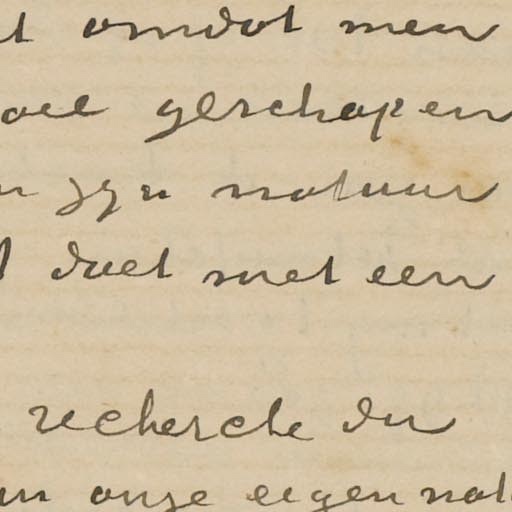 t omdat men
oel geschapen
n zyn natuur
t doet met een
recherche du
in onze eigen nat